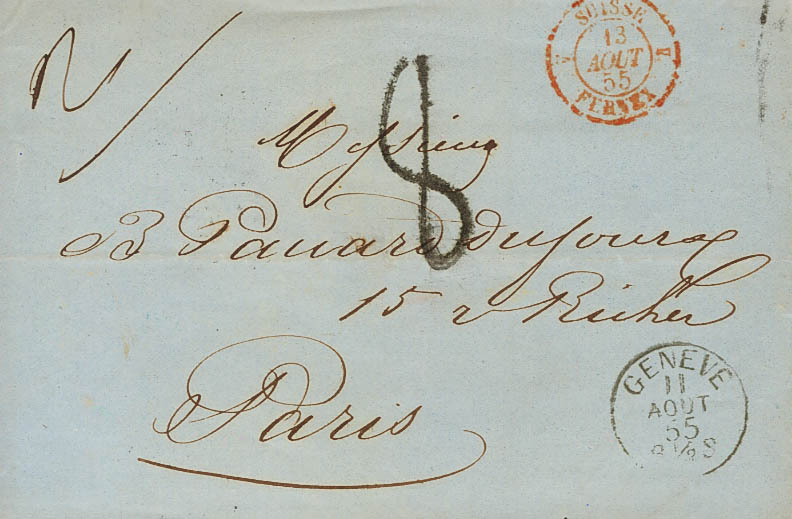 SUISSE
13
AOUT
55
FERNEX
8
Messieurs
B Panard Dufour &
15 r Richer
Paris
GENEVE
11
AOUT
55